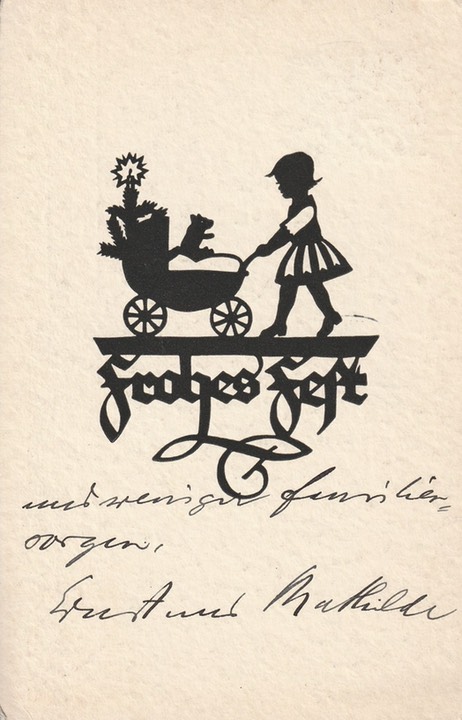 Frohes Fest
und weniger Familien-
sorgen,
Ernst und Mathilde